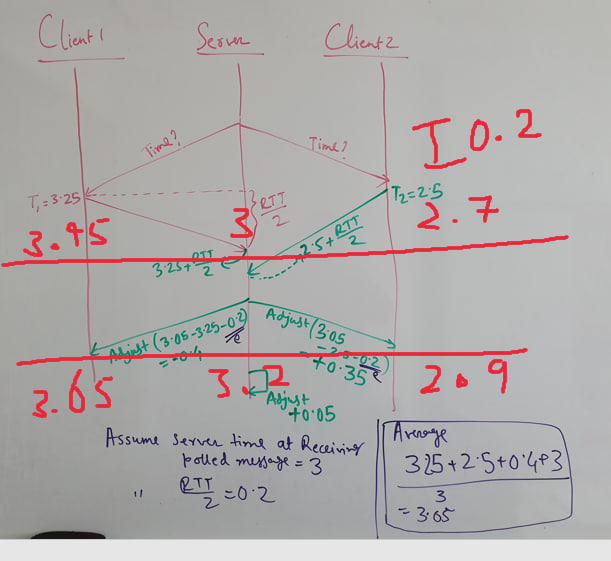 Client1
Server
Client2
I 0.2
Time?
Time?
T1=3.25
RTT/2
T2=2.5
3.45
3
2.7
3.25+RTT/2
2.5+RTT/2
Adjust (3.05-3.25-0.2)
e
=-0.4
Adjust (3.05
-2.5-0.2)
e
=+0.35
3.65
3.2
2.9
Adjust
+0.05
Assume server time at Receiving
polled message = 3
" RTT/2 = 0.2
Average
3.25+2.5+0.4+3
3
= 3.05